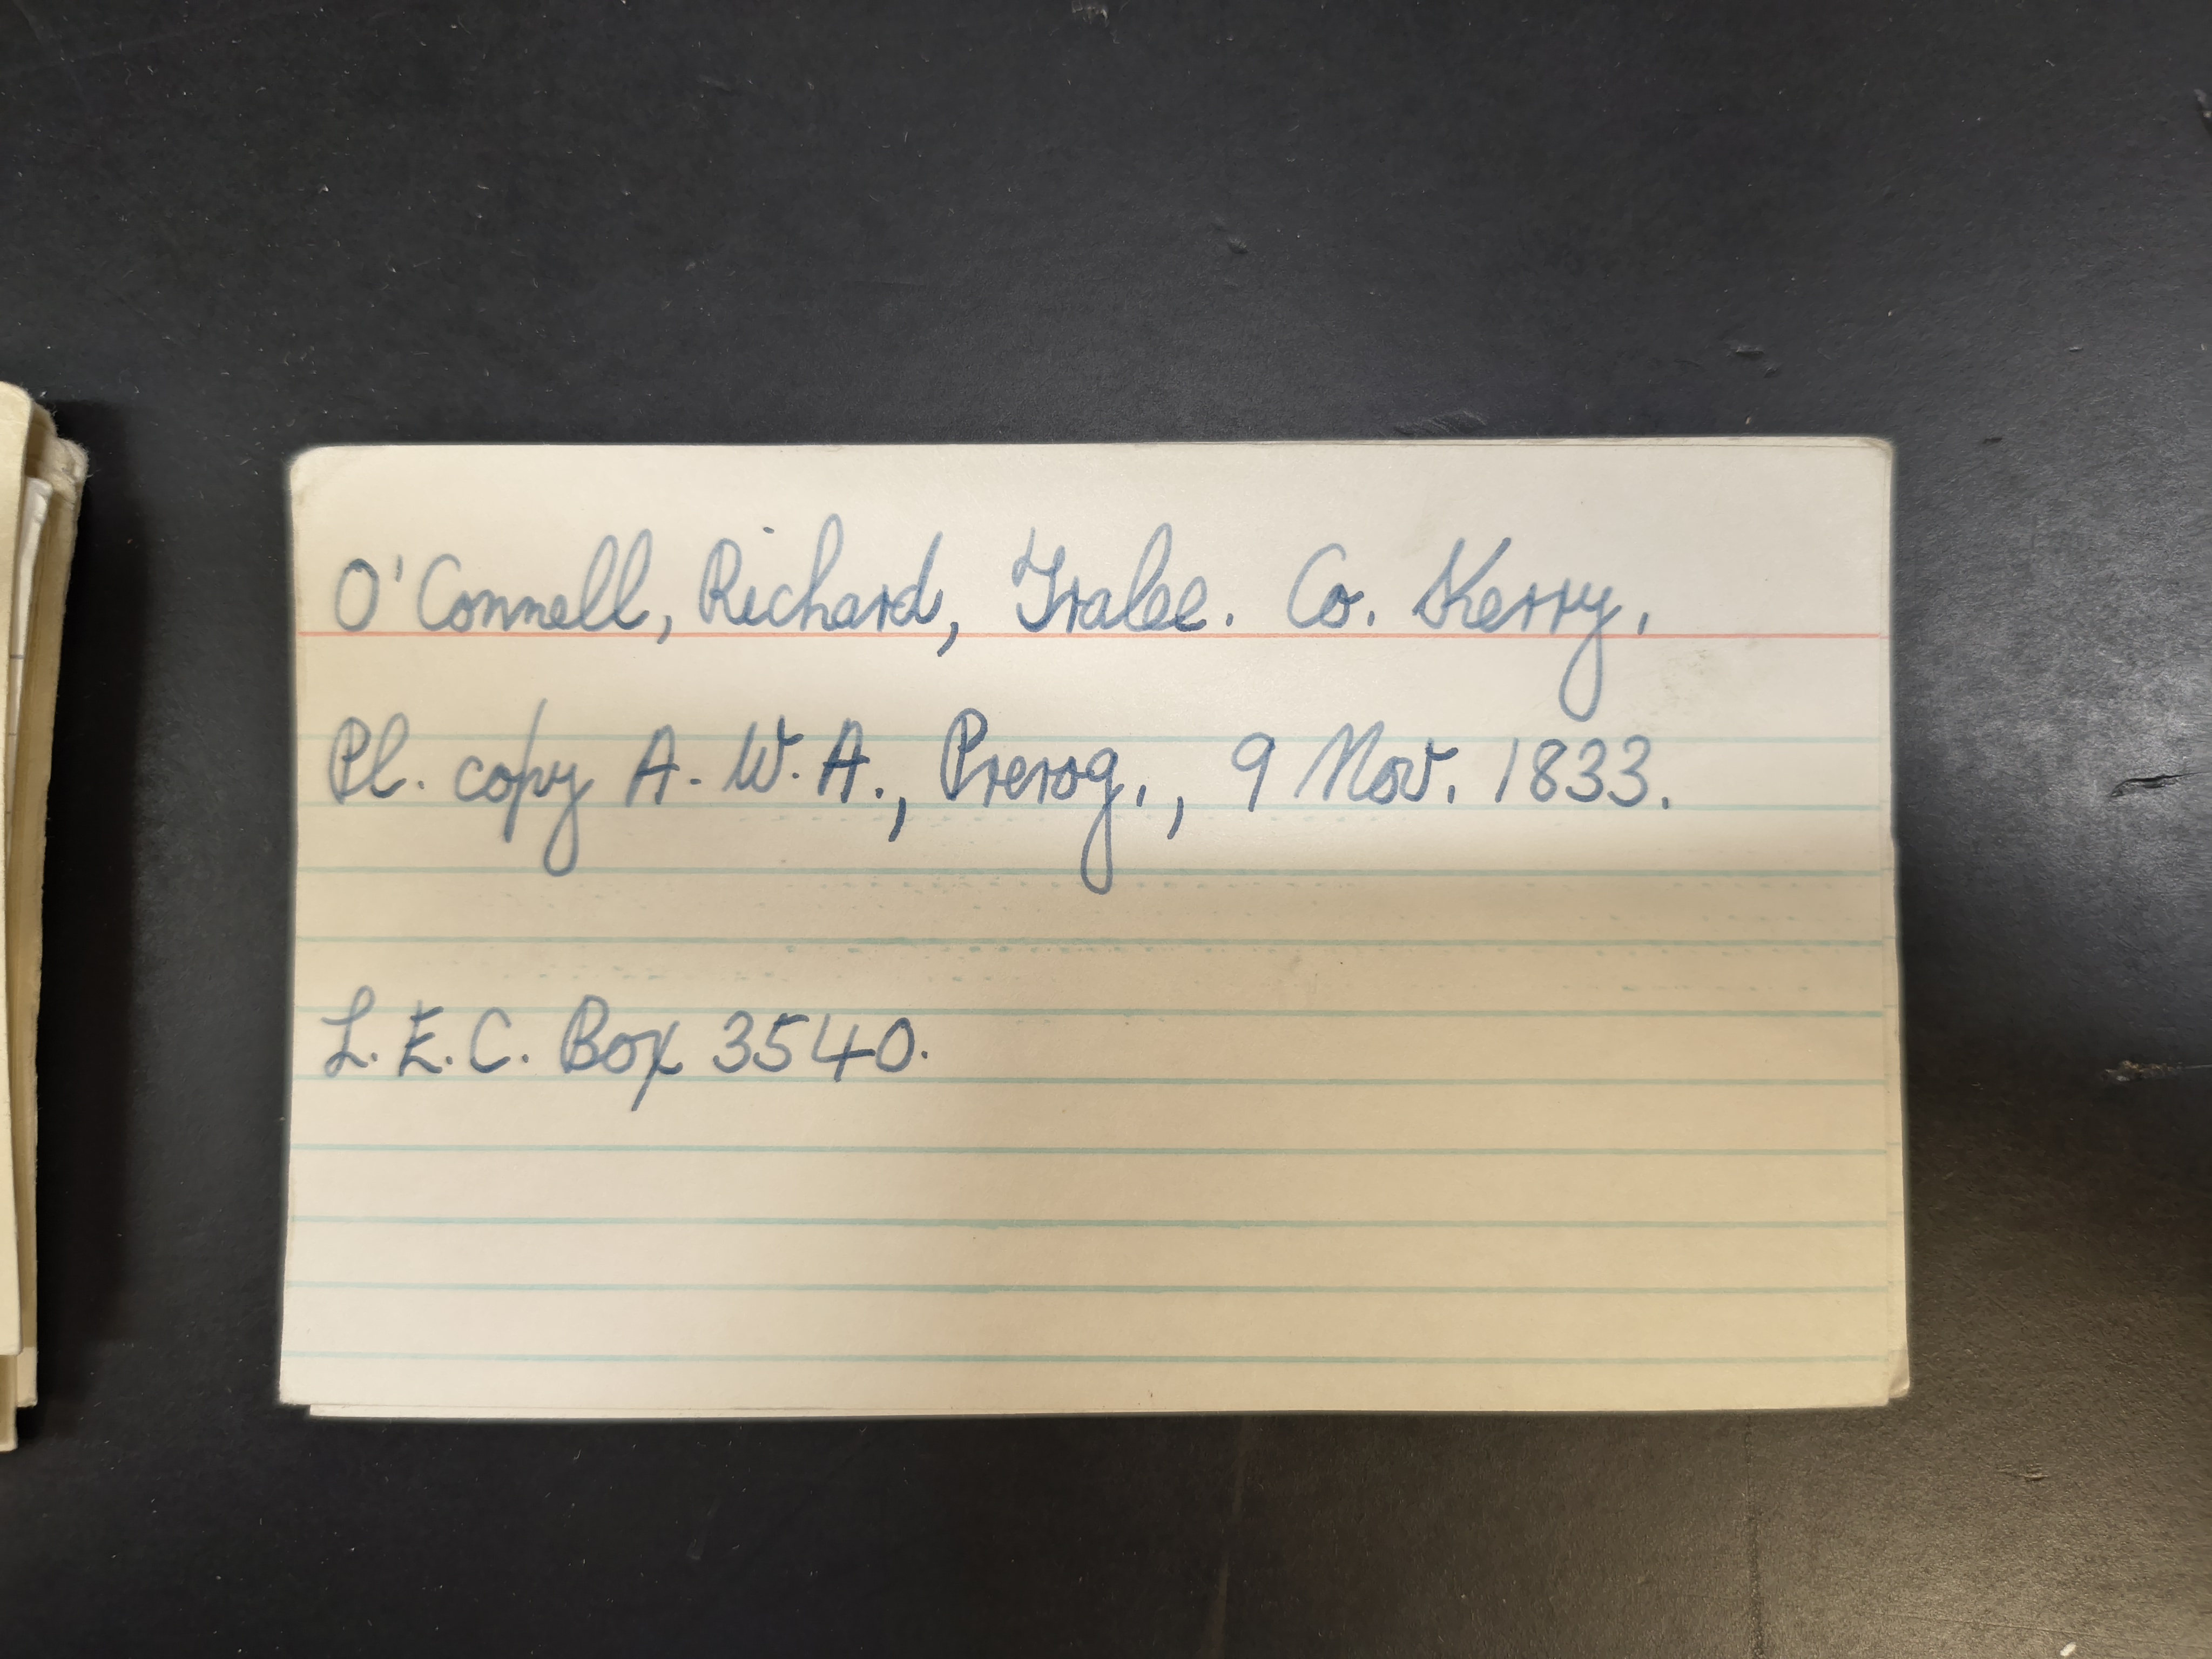 O'Connell, Richard, Tralee. Co. Kerry.
Pl. copy A.W.A., Prerog., 9 Nov. 1833.
L.E.C. Box 3540.